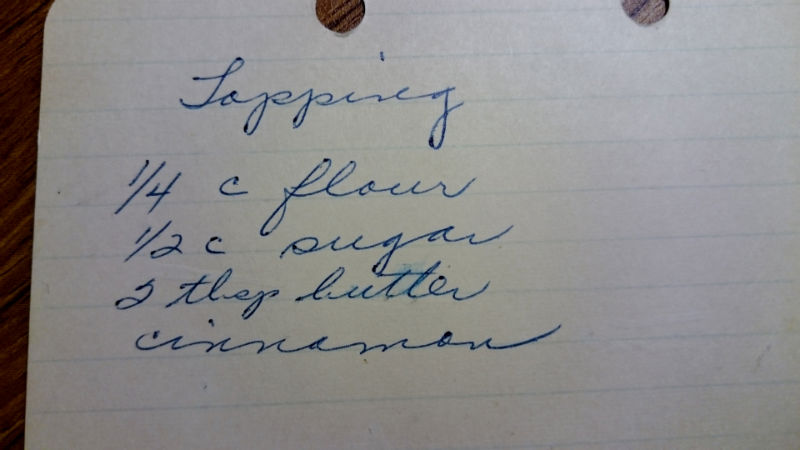 Topping
1/4 c flour
1/2 c sugar
2 tbsp butter
cinnamon